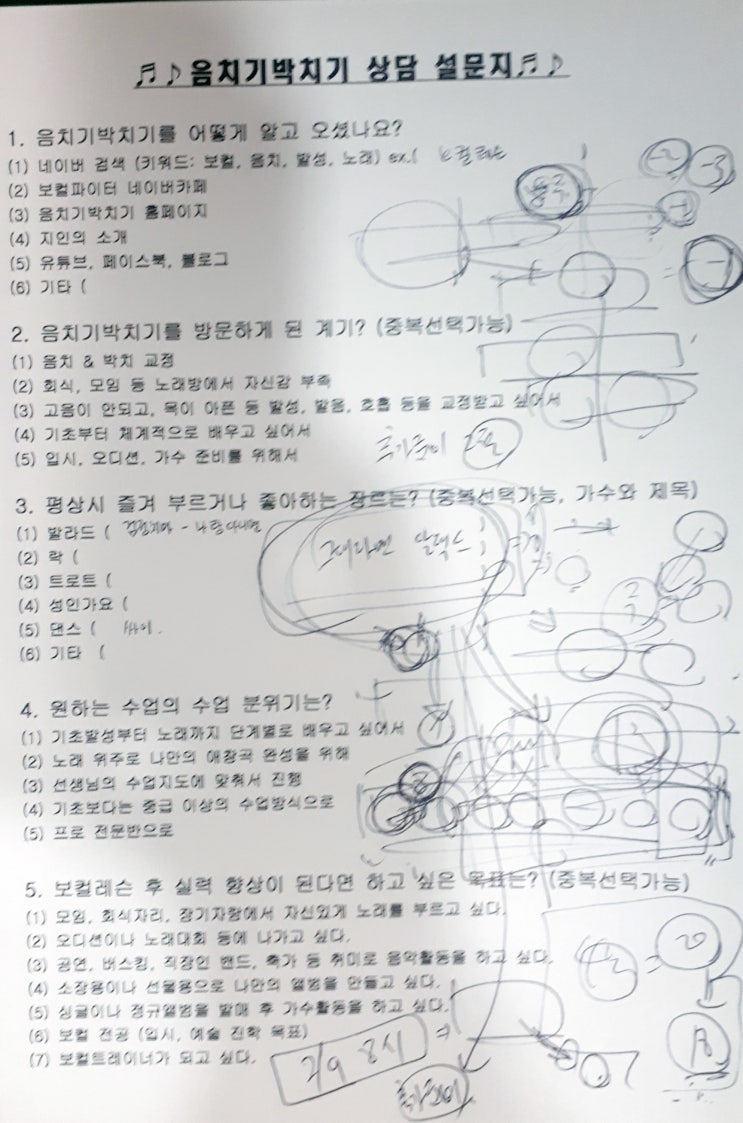 ♬♪음치기박치기 상담 설문지♬♪
1. 음치기박치기를 어떻게 알고 오셨나요?
(1) 네이버 검색 (키워드: 보컬, 음치, 발성, 노래) ex.( 보컬레슨 )
(2) 보컬파이터 네이버카페
(3) 음치기박치기 홈페이지
(4) 지인의 소개
(5) 유튜브, 페이스북, 블로그
(6) 기타 (
-2 -3
2. 음치기박치기를 방문하게 된 계기? (중복선택가능)
(1) 음치 & 박치 교정
(2) 회식, 모임 등 노래방에서 자신감 부족
(3) 고음이 안되고, 목이 아픈 등 발성, 발음, 호흡 등을 교정받고 싶어서
(4) 기초부터 체계적으로 배우고 싶어서
(5) 입시, 오디션, 가수 준비를 위해서
3. 평상시 즐겨 부르거나 좋아하는 장르는? (중복선택가능, 가수와 제목)
(1) 발라드 (
(2) 락 (
(3) 트로트 (
(4) 성인가요 (
(5) 댄스 ( 싸이.
(6) 기타 (
4. 원하는 수업의 수업 분위기는?
(1) 기초발성부터 노래까지 단계별로 배우고 싶어서
(2) 노래 위주로 나만의 애창곡 완성을 위해
(3) 선생님의 수업지도에 맞춰서 진행
(4) 기초보다는 중급 이상의 수업방식으로
(5) 프로 전문반으로
5. 보컬레슨 후 실력 향상이 된다면 하고 싶은 목표는? (중복선택가능)
(1) 모임, 회식자리, 장기자랑에서 자신있게 노래를 부르고 싶다.
(2) 오디션이나 노래대회 등에 나가고 싶다.
(3) 공연, 버스킹, 직장인 밴드, 축가 등 취미로 음악활동을 하고 싶다.
(4) 소장용이나 선물용으로 나만의 앨범을 만들고 싶다.
(5) 싱글이나 정규앨범을 발매 후 가수활동을 하고 싶다.
(6) 보컬 전공 (입시, 예술 진학 목표)
(7) 보컬트레이너가 되고 싶다.
2/9 8시